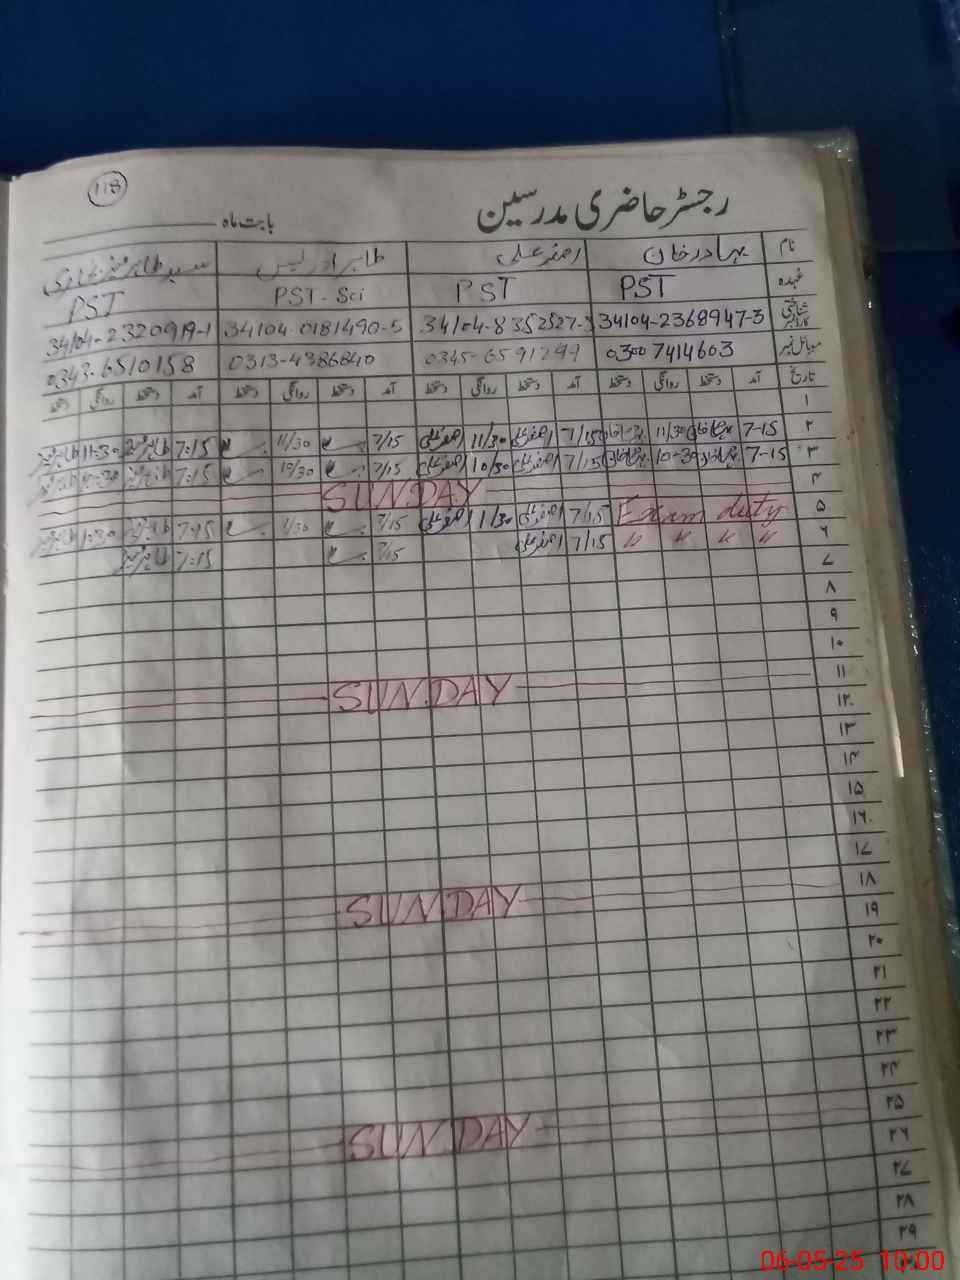 118
رجسٹر حاضری مدرسین
بابت ماہ
نام بہادر خان اصغر علی طاہر ادریس سید طاہر منیر بخاری
عہدہ PST PST PST-Sci PST
شناختی کارڈ نمبر 34104-2368947-3 34104-8352527-3 34104-0181490-5 34104-2320919-1
موبائل نمبر 0300 7414603 0345-6591299 0313-4386840 0343-6510158
تاریخ آمد دستخط روانگی دستخط آمد دستخط روانگی دستخط آمد دستخط روانگی دستخط آمد دستخط روانگی دستخط
۱
۲ 7-15 بہادر خان 11/30 بہادر خان 7/15 اصغر علی 11/30 اصغر علی 7/15 11/30 7:15 11:30
۳ 7-15 بہادر خان 10-30 بہادر خان 7/15 اصغر علی 10/30 اصغر علی 7/15 10/30 7:15 10:30
۴ SUNDAY
۵ Exam duty 7/15 اصغر علی 11/30 اصغر علی 7/15 11/30 7:15 11:30
۶ " " " " 7/15 اصغر علی 7/15 7:15
۷
۸
۹
۱۰
۱۱ SUNDAY
۱۲
۱۳
۱۴
۱۵
۱۶
۱۷
۱۸ SUNDAY
۱۹
۲۰
۲۱
۲۲
۲۳
۲۴
۲۵ SUNDAY
۲۶
۲۷
۲۸
۲۹
06-05-25 10:00